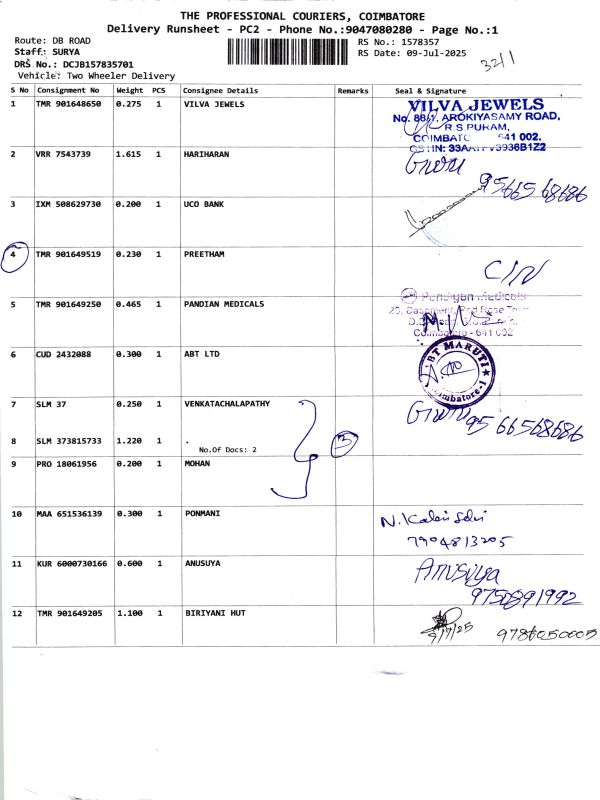 THE PROFESSIONAL COURIERS, COIMBATORE
Delivery Runsheet - PC2 - Phone No.:9047080280 - Page No.:1
Route: DB ROAD
RS No.: 1578357
Staff: SURYA
RS Date: 09-Jul-2025
DRS No.: DCJB157835701
32/1
Vehicle: Two Wheeler Delivery
S No Consignment No Weight PCS Consignee Details Remarks Seal & Signature
1 TMR 901648650 0.275 1 VILVA JEWELS
VILVA JEWELS
No. 88/1, AROKIYASAMY ROAD,
R.S.PURAM,
641 002.
2 VRR 7543739 1.615 1 HARIHARAN
9566568686
3 IXM 508629730 0.200 1 UCO BANK
4 TMR 901649519 0.230 1 PREETHAM
C/N
5 TMR 901649250 0.465 1 PANDIAN MEDICALS
Pandiyan Medicals
Coimbatore - 641 002
6 CUD 2432088 0.300 1 ABT LTD
ABT MARUTI
Coimbatore-1
7 SLM 37 0.250 1 VENKATACHALAPATHY
9566568686
8 SLM 373815733 1.220 1 .
No.Of Docs: 2
3
9 PRO 18061956 0.200 1 MOHAN
10 MAA 651536139 0.300 1 PONMANI
N. Kalai Selvi
7904813205
11 KUR 6000730166 0.600 1 ANUSUYA
Anusuya
9750891992
12 TMR 901649205 1.100 1 BIRIYANI HUT
9/7/25